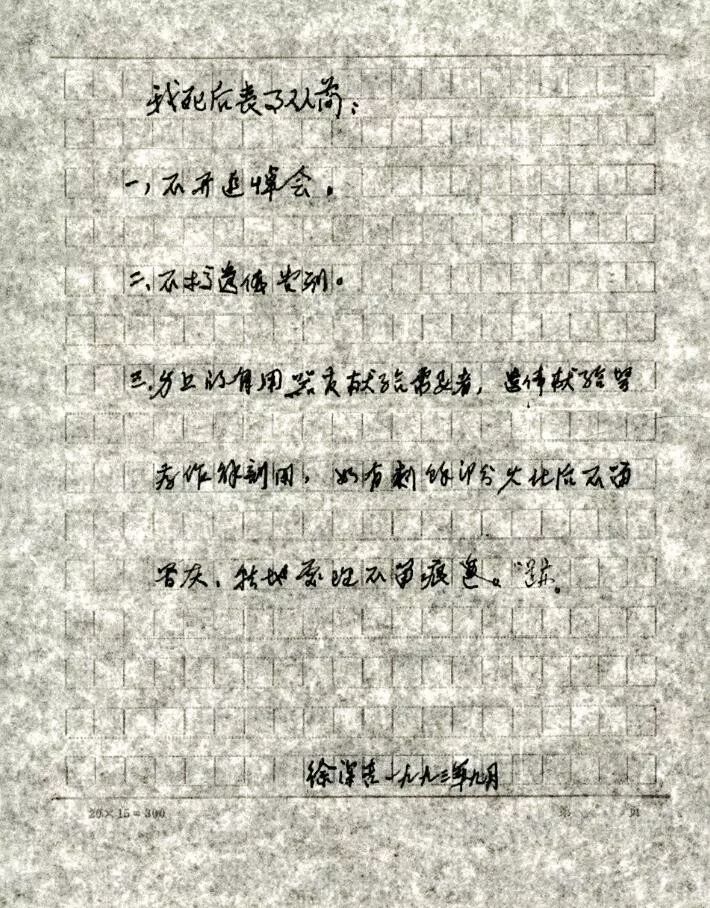 我死后丧事从简：
一、不开追悼会。
二、不搞遗体告别。
三、身上的有用器官献给需要者，遗体献给学
校作解剖用，如有剩余部分火化后不留
骨灰，就地处理不留痕迹。
徐深吉 一九九三年九月
20×15＝300
第 页